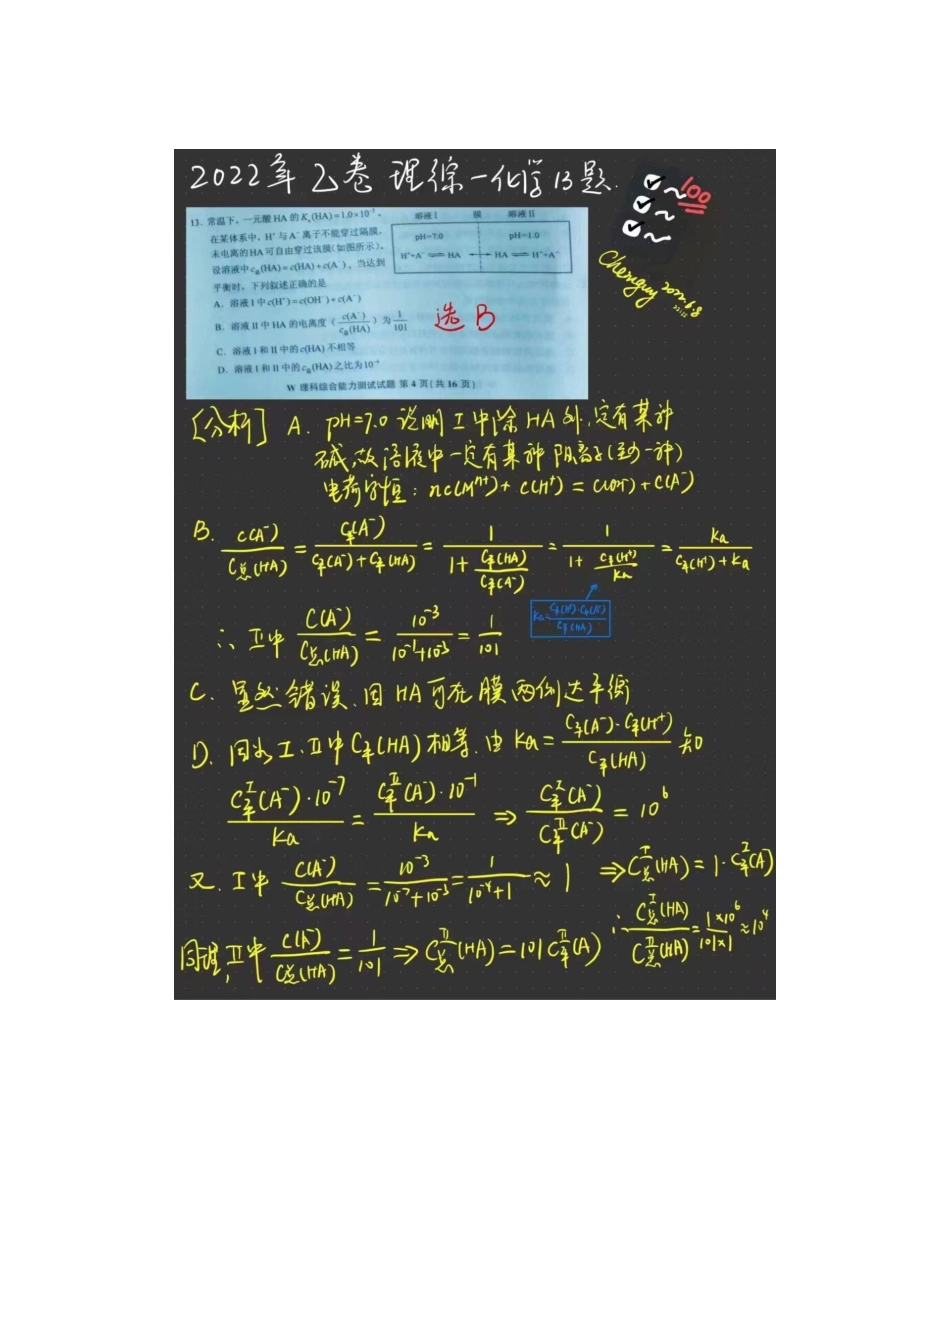 2022年乙卷理综-化学13题.
100
Chemguy 2022.6.8
13. 常温下，一元酸 HA 的 Kₐ(HA)=1.0×10⁻³。
在某体系中，H⁺ 与 A⁻ 离子不能穿过隔膜，
未电离的HA可自由穿过该膜(如图所示)。
设溶液中 c总(HA)=c(HA)+c(A⁻)，当达到
平衡时，下列叙述正确的是
溶液 I 膜 溶液 II
pH=7.0 pH=1.0
H⁺+A⁻ ⇌ HA ←→ HA ⇌ H⁺+A⁻
A. 溶液 I 中 c(H⁺)=c(OH⁻)+c(A⁻)
B. 溶液 II 中 HA 的电离度 (c(A⁻)/c总(HA)) 为 1/101
选B
C. 溶液 I 和 II 中的 c(HA) 不相等
D. 溶液 I 和 II 中的 c总(HA) 之比为 10⁻⁴
W 理科综合能力测试试题 第 4 页(共 16 页)
[分析] A. pH=7.0 说明 I 中除 HA 外，定有某种
碱，故溶液中一定有某种阳离子(至少一种)
电荷守恒: nc(Mⁿ⁺)+c(H⁺)=c(OH⁻)+c(A⁻)
B. c(A⁻)/c总(HA) = c平(A⁻)/(c平(A⁻)+c平(HA)) = 1/(1+c平(HA)/c平(A⁻)) = 1/(1+c平(H⁺)/Ka) = Ka/(c平(H⁺)+Ka)
Ka=c平(H⁺)·c平(A⁻)/c平(HA)
∴ II中 c(A⁻)/c总(HA) = 10⁻³/(10⁻¹+10⁻³) = 1/101
C. 显然错误，因HA可在膜两侧达平衡
D. 因为 I、II中 c平(HA) 相等，由 Ka = c平(A⁻)·c平(H⁺)/c平(HA) 知
c平ᴵ(A⁻)·10⁻⁷/Ka = c平ᴵᴵ(A⁻)·10⁻¹/Ka ⇒ c平ᴵ(A⁻)/c平ᴵᴵ(A⁻) = 10⁶
又，I中 c(A⁻)/c总(HA) = 10⁻³/(10⁻⁷+10⁻³) = 1/(10⁻⁴+1) ≈ 1 ⇒ c总ᴵ(HA) = 1·c平ᴵ(A⁻)
同理，II中 c(A⁻)/c总(HA) = 1/101 ⇒ c总ᴵᴵ(HA) = 101c平ᴵᴵ(A⁻) ∴ c总ᴵ(HA)/c总ᴵᴵ(HA) = 1×10⁶/101×1 ≈ 10⁴